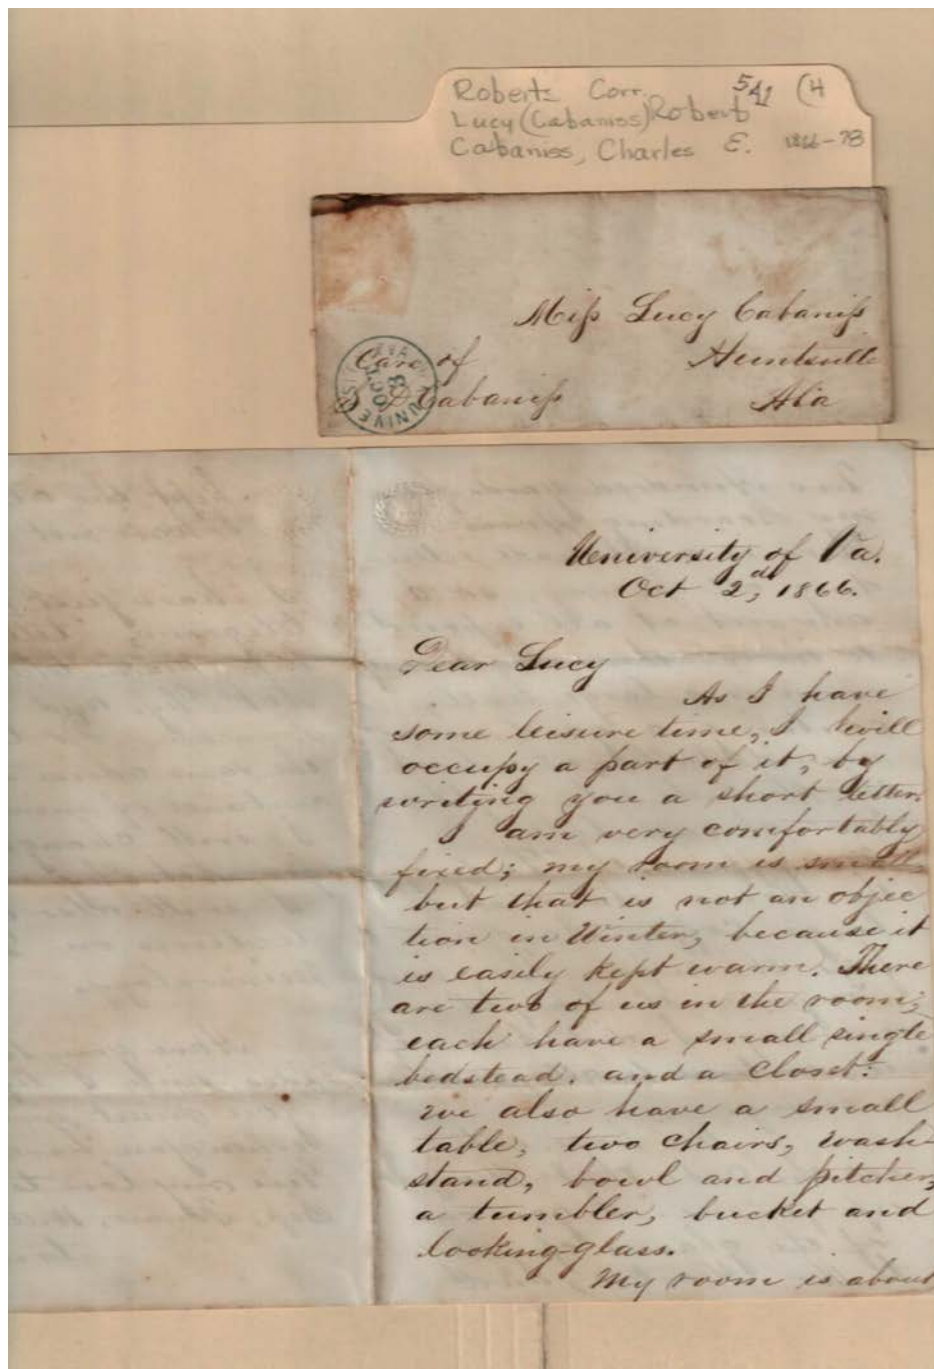 Roberts Corr. 541 (4
Lucy (Cabaniss) Roberts
Cabaniss, Charles E. 1866-78
Miss Lucy Cabaniss
Care of Huntsville
Cabaniss Ala
OCT
UNIVE
University of Va.
Oct 2d, 1866.
Dear Lucy
As I have
some leisure time, I will
occupy a part of it, by
writing you a short letter.
I am very comfortably
fixed; my room is small,
but that is not an objec
tion in Winter, because it
is easily kept warm. There
are two of us in the room;
each have a small single
bedstead, and a Closet:
we also have a small
table, two chairs, wash-
stand, bowl and pitcher,
a tumbler, bucket and
looking-glass.
My room is about